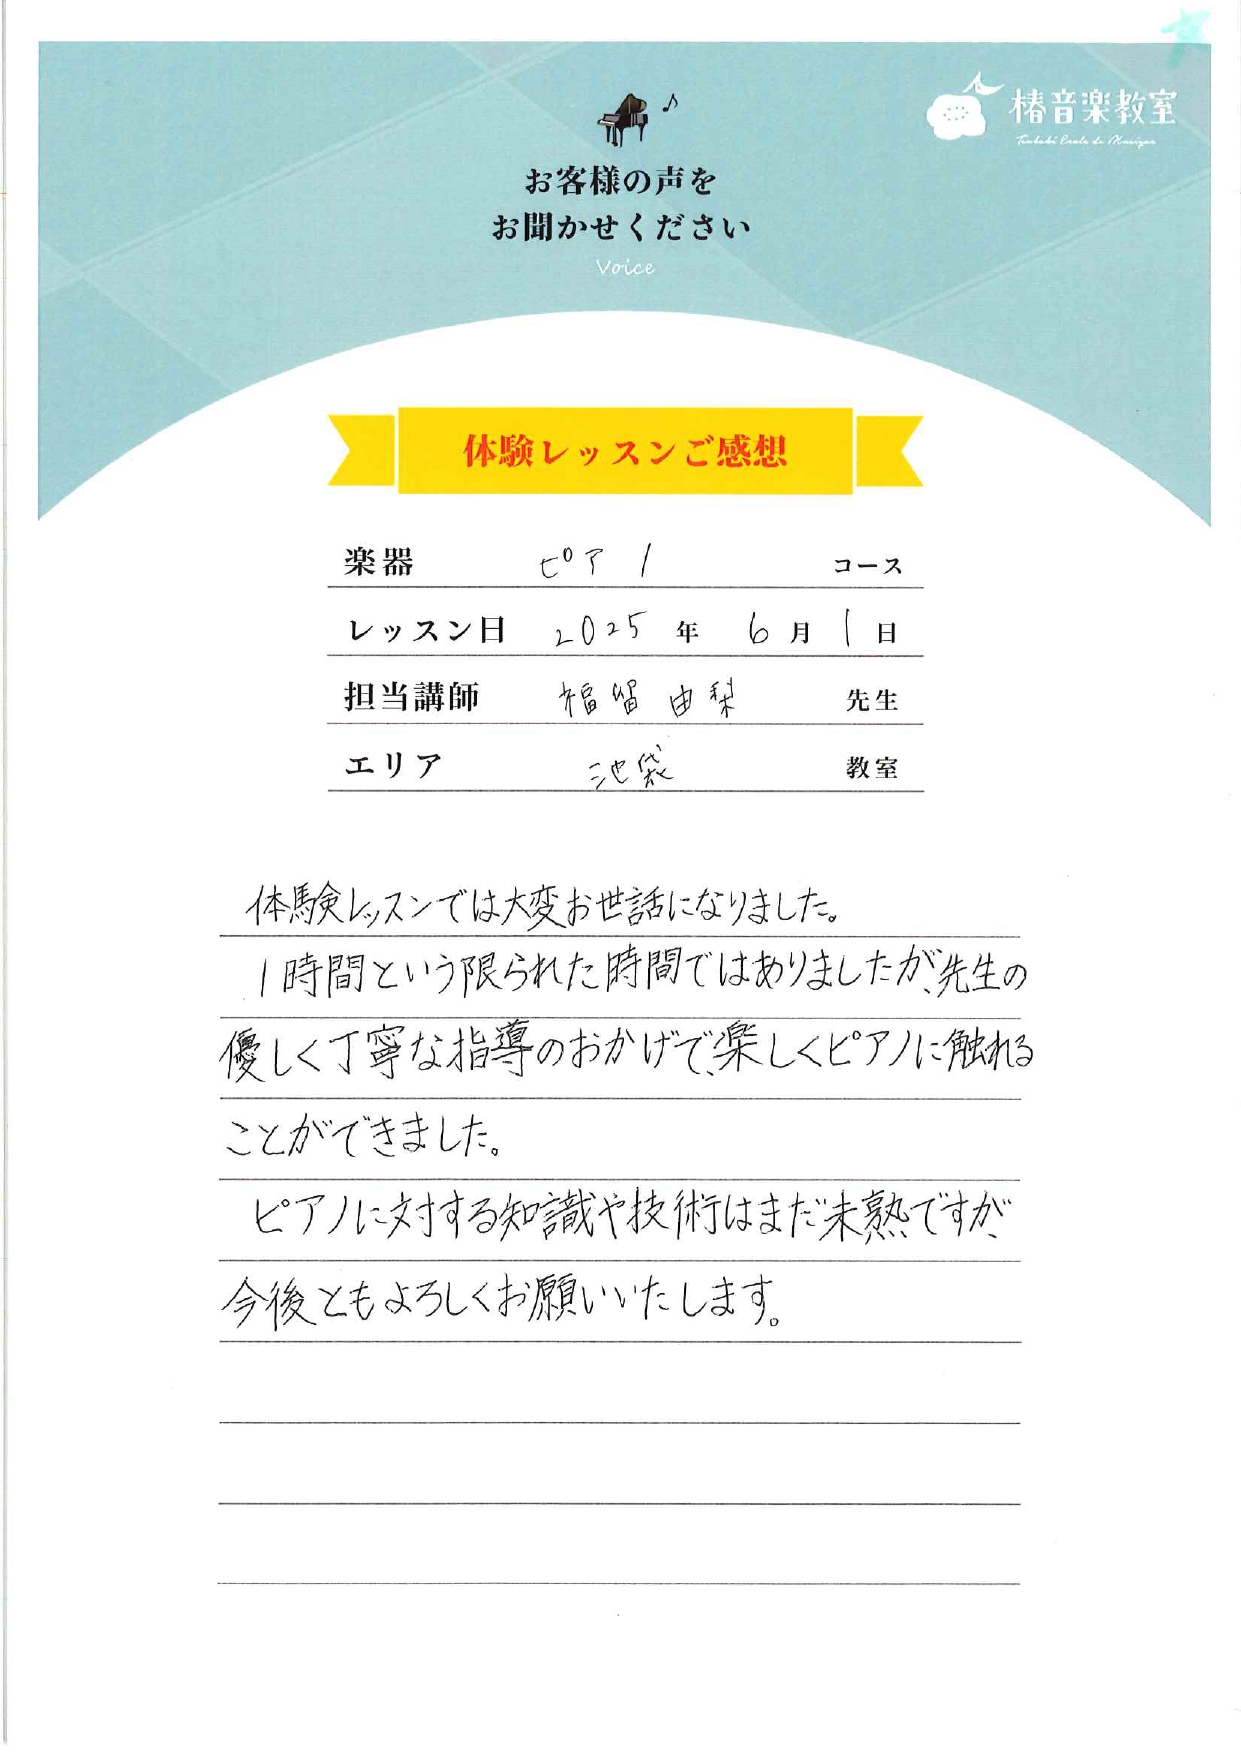 椿音楽教室
Tsubaki Ecole de Musique
お客様の声を
お聞かせください
Voice
体験レッスンご感想
楽器 ピアノ コース
レッスン日 2025 年 6 月 1 日
担当講師 福留 由梨 先生
エリア 池袋 教室
体験レッスンでは大変お世話になりました。
1時間という限られた時間ではありましたが、先生の
優しく丁寧な指導のおかげで、楽しくピアノに触れる
ことができました。
ピアノに対する知識や技術はまだ未熟ですが、
今後ともよろしくお願いいたします。